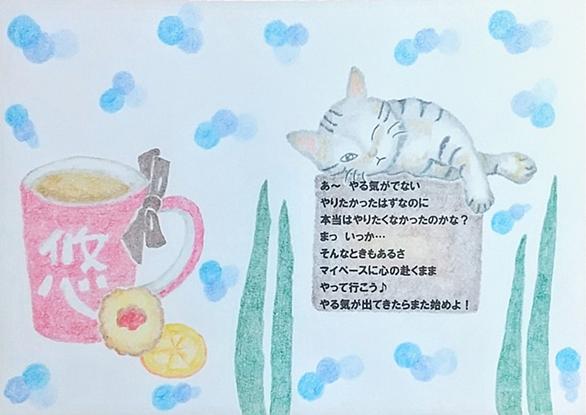 悠
あ～　やる気がでない
やりたかったはずなのに
本当はやりたくなかったのかな？
まっ　いっか…
そんなときもあるさ
マイペースに心の赴くまま
やって行こう♪
やる気が出てきたらまた始めよ！